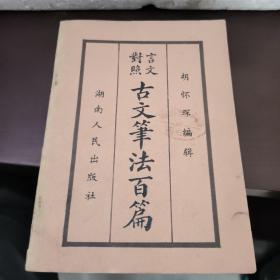 胡怀琛編輯
言文
對照
古文筆法百篇
湖南人民出版社